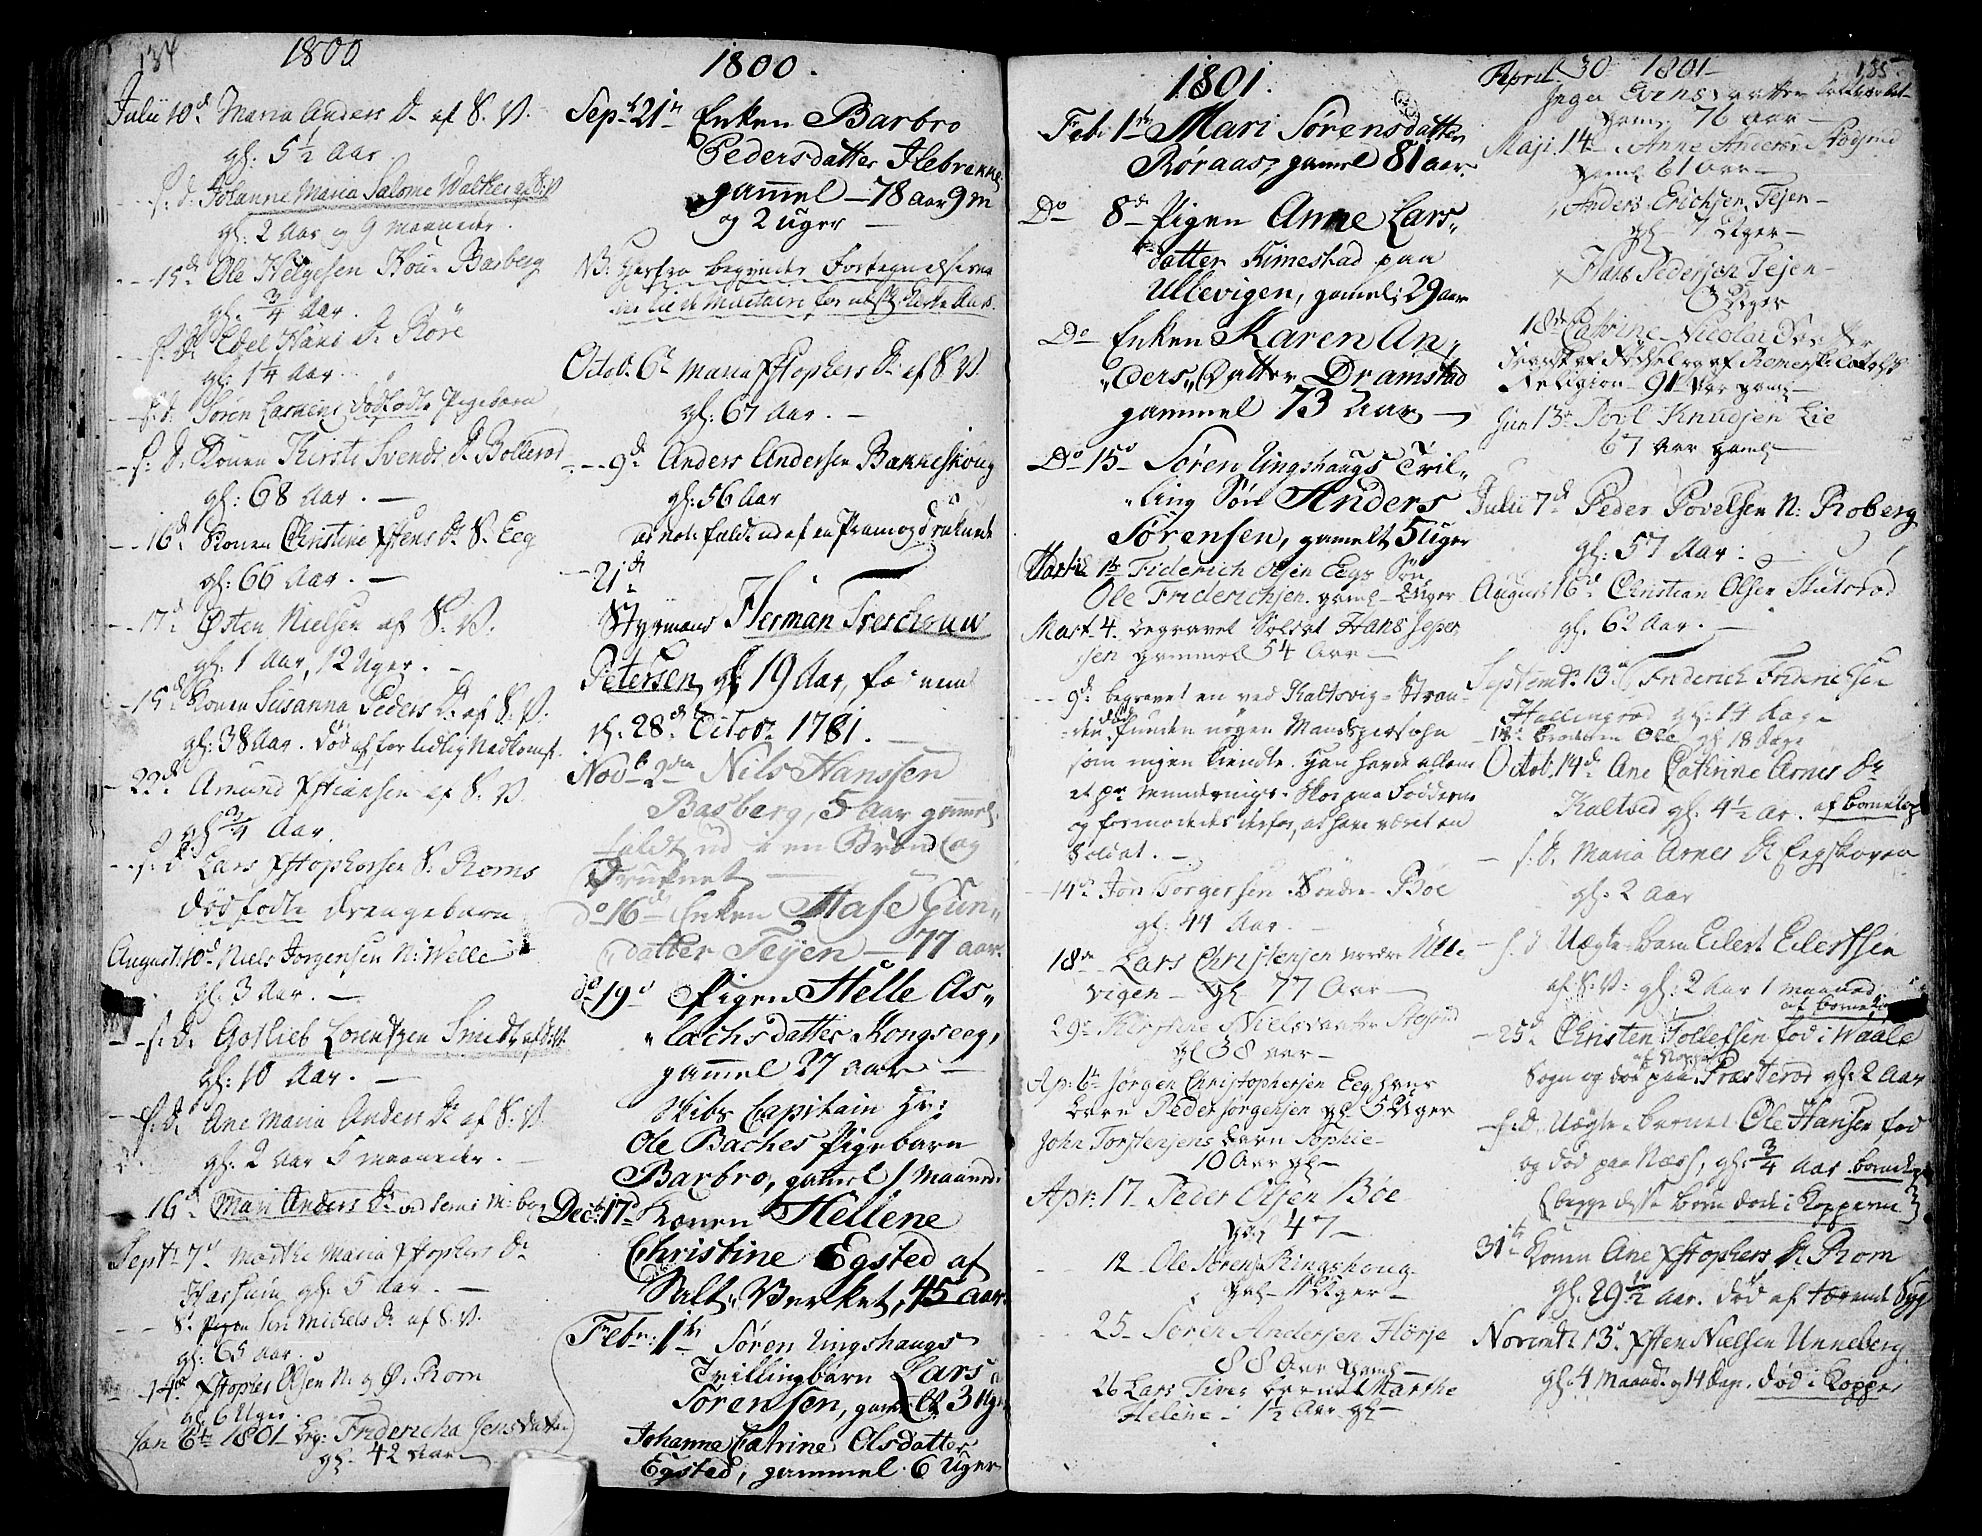 134
1800
Julii 10d Maria Anders D. af S. V.
gl: 5 1/2 Aar
s. d. Johanne Maria Salome Walther af S. V.
gl: 2 Aar og 9 maaneder.
15d Ole Helgesen Barberg
gl: 3/4 Aar.
s. d. Edel Hans D. Röre
gl: 14 Aar.
s. d. Sören dödfödte Pigebarn
s. d. Konen Kirsti Svends D. Bollerød
gl: 68 Aar.
16d Konen Christine Xstens D. S. Eeg
gl: 66 Aar.
17d Østen Nielsen af S. V.
gl: 1 Aar, 12 Uger.
15d Konen Susanna Peders D. af S. V.
gl: 38 Aar. död af for tidlig Nedkomst.
22d Amund Xstiansen af S. V.
gl: 3/4 Aar.
s. d. Lars Xstophersen S. Roms
dödfödte drengebarn
August: 10d Niels Jørgensen N: Welle
gl: 3 Aar.
s. d. Gotlieb Lorentzen Smidt af S. V.
gl: 10 Aar.
s. d. Ane Maria Anders D. af S. V.
gl: 2 Aar 5 maaneder.
16d Mari Anders D.
Septr 7d Marthe Maria Xstophers D.
gl: 5 Aar.
8d Pigen Siri Michels D. af S. V.
gl: 65 Aar.
14d Xstopher Olsen N. g Ø. Rom
gl: 6 Uger.
Jan 6te 1801 beg: Fridericha Jensdatter
gl: 42 Aar
1800.
Sept. 21de Enken Barbro
Pedersdatter Ilebrekke
gammel 78 Aar 9 m
og 2 uger
NB: Herfra begynder Fortegnelserne
for næste Kirke Aar.
Octob: 6te Maria Xstophers D. af S. V.
gl: 67 Aar.
9d Anders Andersen Bakkeskoug
gl: 56 Aar
faldt ud af en Pram og druknede
21de
Styrmand Herman Treschouw
Petersen gl: 19 Aar,
d. 28de Octob: 1781.
Novb: 2den Nils Hanssen
Basberg, 5 Aar gammel,
faldt ud i en Brønd og
Druknet
do 16de Enken Aase Gun-
datter Tejen 77 aar.
do 19d Pigen Helle As-
lachsdatter Kongseeg,
gammel 27 aar
Skibs Capitain Hr:
Ole Baches Pigebarn
Barbro, gamel 1 Maaned.
Decb: 17d Konen Hellene
Christine Egsted af
Salt-Verket, 45 aar.
Febr: 1te Søren Ungshaugs
Trillingbarn Lars
Sørensen, gamelt 3 Uger
Johanne Catrine Olsdatter
Egsted, gammel 6 Uger
1801.
Feb: 1te Mari Sørensdatter
Røraas, gamel 81 aar
Do 8de Pigen Anne Lars-
datter Kimestad paa
Ullevigen, gamel 29 aar
Do Enken Karen An-
ders Datter Dramstad
gammel 73 Aar
Do 15d Søren Ungshaugs Tril-
ling Søn Anders
Sørensen, gamelt 5 Uger
Martii 1te Friderich Olsen Eegs Søn
Ole Friderichsen gaml Uger
Mart 4. begravet Soldat Hans Jeper
sen gammel 54 Aar
9d begravet en ved Kaltsvig Stran-
den funden nøgen Mandsperson
som ingen kiendte. Han havde allene
et par Skoe paa Fødderne
og formodedes derfor, at have været en
Soldat.
14d Jon Torgersen Søndre Böe
gl: 44 Aar.
18de Lars Christensen nordre Ulle-
vigen gl 77 Aar
29e Kirstine Nielsdatter
gl 38 aar
Ap: 6te Jørgen Christophersen Eeg hans
barn Peder Jørgensen gl 5 Uger
John Torstensens barn Sophie
10 Aar gl
Apr: 17. Peder Olsen Böe
gl 47
12 Ole Sørens Ringshoug
Uger
25 Søren Andersen Hörje
88 Aar gaml
26 Lars barn Marthe
Helene 1 1/2 Aar gl
April 30 1801
135
Inger Evensdatter Saltverket
gaml 76 aar
Maji 14d Anne Anders
gaml 61 Aar
Anders Erichsen Tejen
gl 7 Uger
Hans Pedersen Tejen
3 Uger
18de Catrine Nicolai Datter
Religion 91 Aar gaml
Jun 13d Povl Knudsen Lie
67 Aar gaml
Julii 7d Peder Povelsen N: Roberg
gl: 57 Aar.
August 16d Christian Olsen Skutsrød
gl: 62 Aar.
Septembr 13d Friderich Friderichsen
Hallingrød gl: 14 dage
Broderen Ole gl 18 dage
Octob. 14d Ane Cathrine Arnes Dr
Kaltsød gl: 4 1/2 Ar. af bornekop
s. d. Maria Arnes D. Eegskoven
gl: 2 Aar
s. d Uægte barn Eilert Eilertsen
af S. V: gl: 2 Aar 1 maaned
af bornekop
25d Christen Tollefsen fød i Waale
Sogn og død paa Præsterød gl: 2 Aar
s. d. Uægte barnet Ole Hansen fød
og død paa Næss, gl: 3/4 Aar bornekop
(begge disse børn døde i Kopperne)
31te Konen Ane Xstophers D. Rom
gl: 29 1/2 Aar. død af tærende Syg
Novembr 13d Xsten Nielsen Unneberg
gl: 4 Maand. og 14 dage. død i Kopper